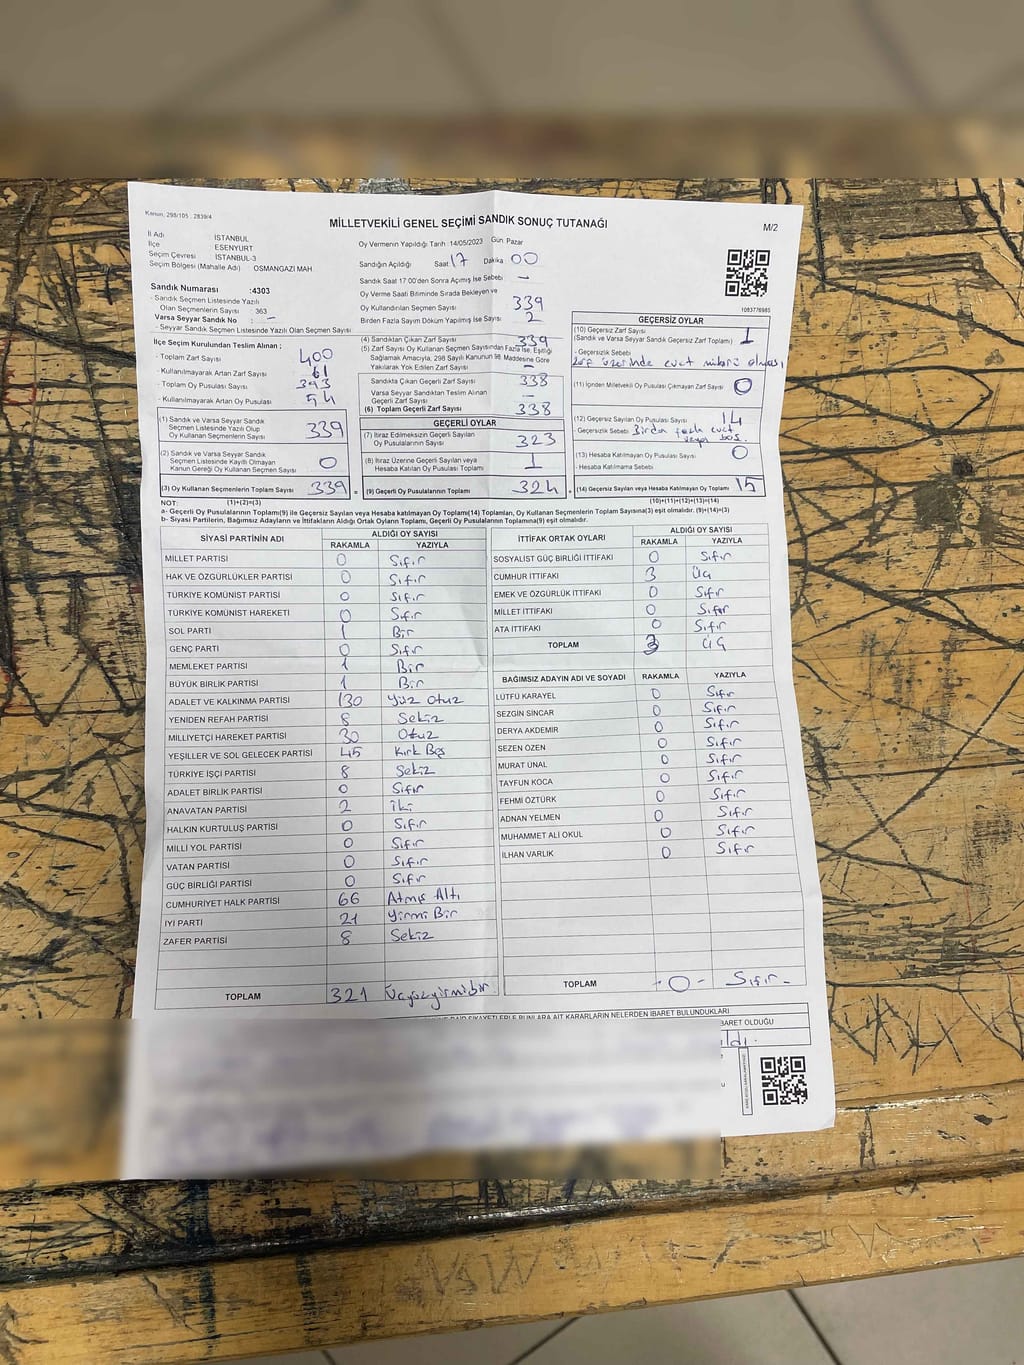 Kanun, 298/105 : 2839/4
MİLLETVEKİLİ GENEL SEÇİMİ SANDIK SONUÇ TUTANAĞI
M/2
İl Adı İSTANBUL
İlçe ESENYURT
Seçim Çevresi İSTANBUL-3
Seçim Bölgesi (Mahalle Adı) OSMANGAZİ MAH
Sandık Numarası :4303
- Sandık Seçmen Listesinde Yazılı
Olan Seçmenlerin Sayısı : 363
Varsa Seyyar Sandık No : -
- Seyyar Sandık Seçmen Listesinde Yazılı Olan Seçmen Sayısı
Oy Vermenin Yapıldığı Tarih :14/05/2023 Gün Pazar
Sandığın Açıldığı Saat 17 Dakika 00
Sandık Saat 17:00'den Sonra Açılmış İse Sebebi -
Oy Verme Saati Bitiminde Sırada Bekleyen ve
Oy Kullandırılan Seçmen Sayısı 339
Birden Fazla Sayım Döküm Yapılmış İse Sayısı 2
1083776985
İlçe Seçim Kurulundan Teslim Alınan ;
- Toplam Zarf Sayısı 400
- Kullanılmayarak Artan Zarf Sayısı 61
- Toplam Oy Pusulası Sayısı 393
- Kullanılmayarak Artan Oy Pusulası 54
(1) Sandık ve Varsa Seyyar Sandık
Seçmen Listesinde Yazılı Olup
Oy Kullanan Seçmenlerin Sayısı 339
(2) Sandık ve Varsa Seyyar Sandık
Seçmen Listesinde Kayıtlı Olmayan
Kanun Gereği Oy Kullanan Seçmen Sayısı 0
(3) Oy Kullanan Seçmenlerin Toplam Sayısı 339
(1)+(2)=(3)
(4) Sandıktan Çıkan Zarf Sayısı 339
(5) Zarf Sayısı Oy Kullanan Seçmen Sayısından Fazla İse, Eşitliği
Sağlamak Amacıyla, 298 Sayılı Kanunun 98. Maddesine Göre
Yakılarak Yok Edilen Zarf Sayısı -
Sandıkta Çıkan Geçerli Zarf Sayısı 338
Varsa Seyyar Sandıktan Teslim Alınan
Geçerli Zarf Sayısı -
(6) Toplam Geçerli Zarf Sayısı 338
GEÇERLİ OYLAR
(7) İtiraz Edilmeksizin Geçerli Sayılan
Oy Pusulalarının Sayısı 323
(8) İtiraz Üzerine Geçerli Sayılan veya
Hesaba Katılan Oy Pusulası Toplamı 1
(9) Geçerli Oy Pusulalarının Toplamı 324
GEÇERSİZ OYLAR
(10) Geçersiz Zarf Sayısı
(Sandık ve Varsa Seyyar Sandık Geçersiz Zarf Toplamı) 1
- Geçersizlik Sebebi
zarf üzerinde evet mührü olması
(11) İçinden Milletvekili Oy Pusulası Çıkmayan Zarf Sayısı 0
(12) Geçersiz Sayılan Oy Pusulası Sayısı 14
- Geçersizlik Sebebi Birden fazla evet
veya boş.
(13) Hesaba Katılmayan Oy Pusulası Sayısı 0
- Hesaba Katılmama Sebebi
(14) Geçersiz Sayılan veya Hesaba Katılmayan Oy Toplamı 15
(10)+(11)+(12)+(13)=(14)
NOT:
a- Geçerli Oy Pusulalarının Toplamı(9) ile Geçersiz Sayılan veya Hesaba katılmayan Oy Toplamı(14) Toplamları, Oy Kullanan Seçmenlerin Toplam Sayısına(3) eşit olmalıdır. (9)+(14)=(3)
b- Siyasi Partilerin, Bağımsız Adayların ve İttifakların Aldığı Ortak Oyların Toplamı, Geçerli Oy Pusulalarının Toplamına(9) eşit olmalıdır.
SİYASİ PARTİNİN ADI ALDIĞI OY SAYISI
RAKAMLA YAZIYLA
MİLLET PARTİSİ 0 Sıfır
HAK VE ÖZGÜRLÜKLER PARTİSİ 0 Sıfır
TÜRKİYE KOMÜNİST PARTİSİ 0 Sıfır
TÜRKİYE KOMÜNİST HAREKETİ 0 Sıfır
SOL PARTİ 1 Bir
GENÇ PARTİ 0 Sıfır
MEMLEKET PARTİSİ 1 Bir
BÜYÜK BİRLİK PARTİSİ 1 Bir
ADALET VE KALKINMA PARTİSİ 130 Yüz Otuz
YENİDEN REFAH PARTİSİ 8 Sekiz
MİLLİYETÇİ HAREKET PARTİSİ 30 Otuz
YEŞİLLER VE SOL GELECEK PARTİSİ 45 Kırk Beş
TÜRKİYE İŞÇİ PARTİSİ 8 Sekiz
ADALET BİRLİK PARTİSİ 0 Sıfır
ANAVATAN PARTİSİ 2 İki
HALKIN KURTULUŞ PARTİSİ 0 Sıfır
MİLLİ YOL PARTİSİ 0 Sıfır
VATAN PARTİSİ 0 Sıfır
GÜÇ BİRLİĞİ PARTİSİ 0 Sıfır
CUMHURİYET HALK PARTİSİ 66 Atmış Altı
İYİ PARTİ 21 Yirmi Bir
ZAFER PARTİSİ 8 Sekiz
TOPLAM 321 Üçyüzyirmibir
İTTİFAK ORTAK OYLARI ALDIĞI OY SAYISI
RAKAMLA YAZIYLA
SOSYALİST GÜÇ BİRLİĞİ İTTİFAKI 0 Sıfır
CUMHUR İTTİFAKI 3 Üç
EMEK VE ÖZGÜRLÜK İTTİFAKI 0 Sıfır
MİLLET İTTİFAKI 0 Sıfır
ATA İTTİFAKI 0 Sıfır
TOPLAM 3 Üç
BAĞIMSIZ ADAYIN ADI VE SOYADI RAKAMLA YAZIYLA
LÜTFÜ KARAYEL 0 Sıfır
SEZGİN SİNCAR 0 Sıfır
DERYA AKDEMİR 0 Sıfır
SEZEN ÖZEN 0 Sıfır
MURAT ÜNAL 0 Sıfır
TAYFUN KOCA 0 Sıfır
FEHMİ ÖZTÜRK 0 Sıfır
ADNAN YELMEN 0 Sıfır
MUHAMMET ALİ OKUL 0 Sıfır
İLHAN VARLIK 0 Sıfır
TOPLAM -0- Sıfır -
DAİR ŞİKAYETLERLE BUNLARA AİT KARARLARIN NELERDEN İBARET BULUNDUKLARI
BARET OLDUĞU
ldı.